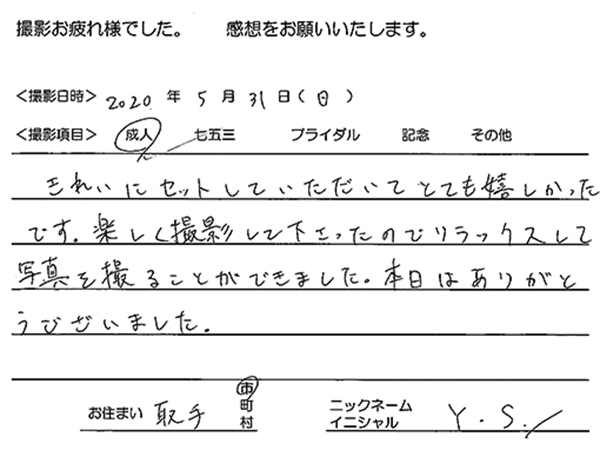 撮影お疲れ様でした。 感想をお願いいたします。
<撮影日時> 2020 年 5 月 31 日(日)
<撮影項目> 成人 七五三 ブライダル 記念 その他
きれいにセットしていただいてとても嬉しかった
です。楽しく撮影して下さったのでリラックスして
写真を撮ることができました。本日はありがと
うございました。
お住まい 取手 市 町 村 ニックネーム イニシャル Y.S.